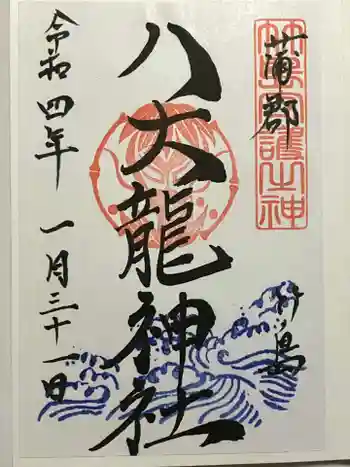 蒲郡
竹島
八大龍神社
令和四年 一月三十一日